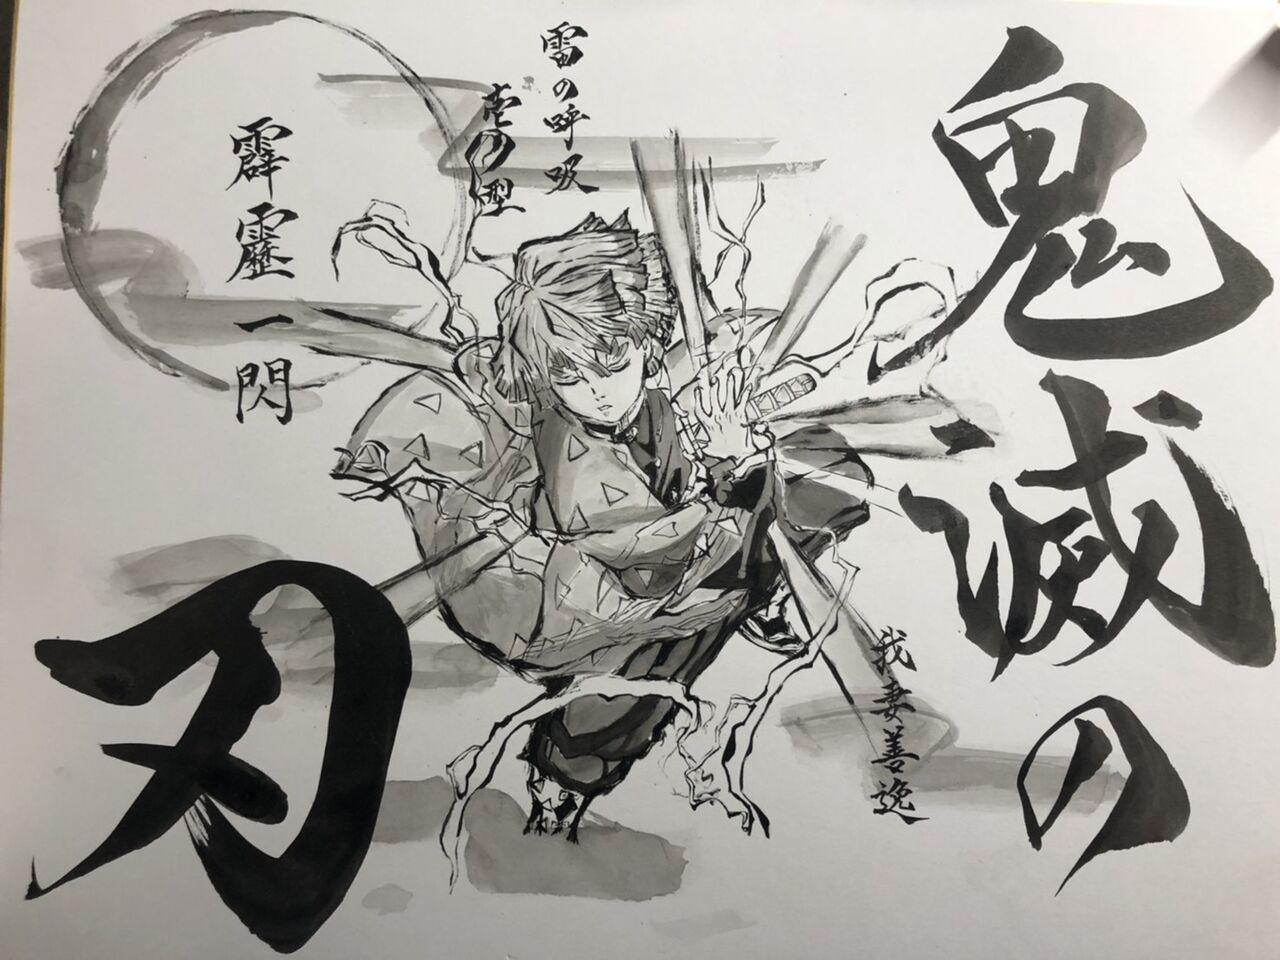 鬼滅の
刃
雷の呼吸
壱の型
霹靂一閃
我妻善逸